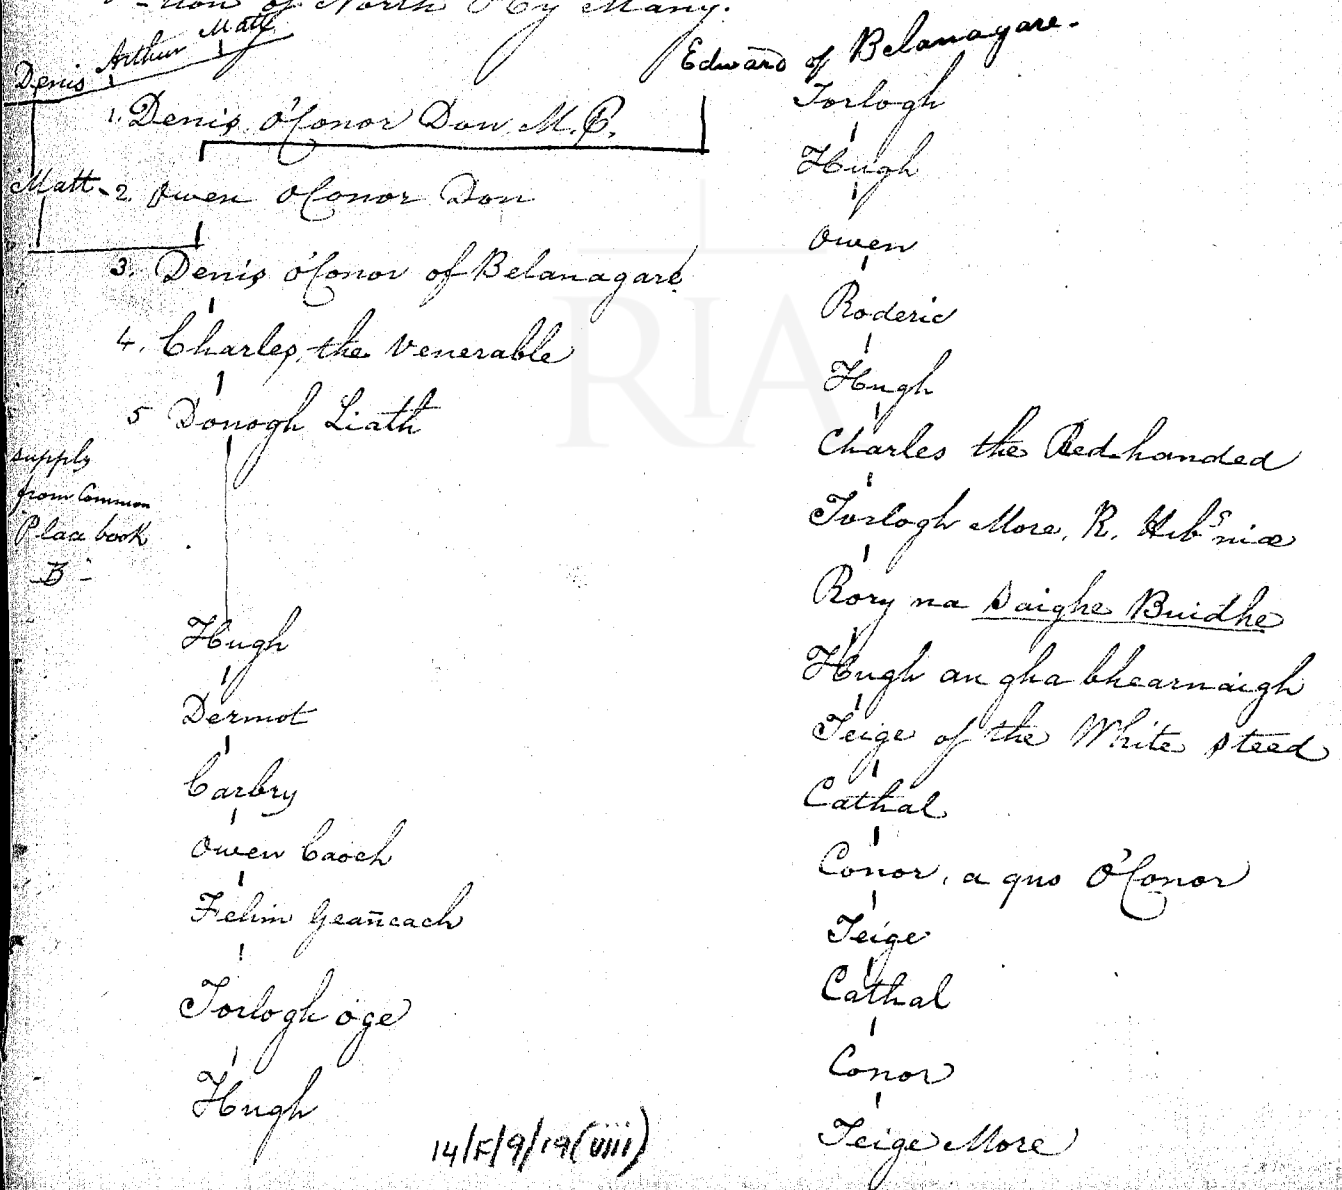 -tion of North Hy Many.
Denis Arthur Matt
1. Denis O'Conor Don M.P.
Matt - 2. Owen O'Conor Don
3. Denis O'Conor of Belanagare
4. Charles, the Venerable
5 Donogh Liath
supply
from Common
Place book
B
Hugh
Dermot
Carbry
Owen Caoch
Felim Geañcach
Torlogh oge
Hugh
14/F/9/19(viii)
Edward of Belanagare.
Torlogh
Hugh
Owen
Roderic
Hugh
Charles the Red-handed
Torlogh More, R. Hibˢniæ
Rory na Saighe Buidhe
Hugh an gha bhearnaigh
Teige of the White Steed
Cathal
Conor, a quo O'Conor
Teige
Cathal
Conor
Teige More
RIA